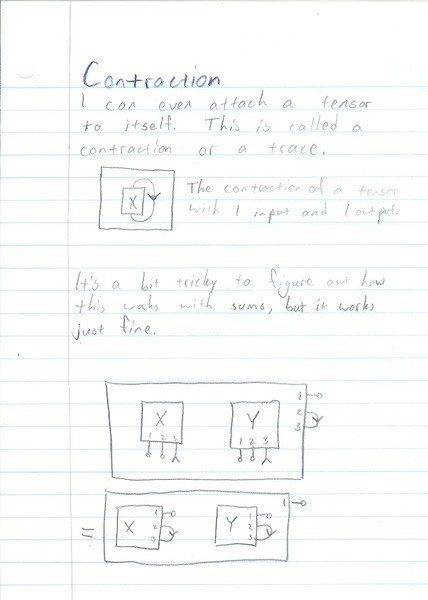 Contraction
I can even attach a tensor
to itself. This is called a
contraction or a trace.
X
The contraction of a tensor
with 1 input and 1 output.
It's a bit tricky to figure out how
this works with sums, but it works
just fine.
X Y
1 2 3 1 2 3
1
2
3
= X 1 2 3 Y 1 2 3 1